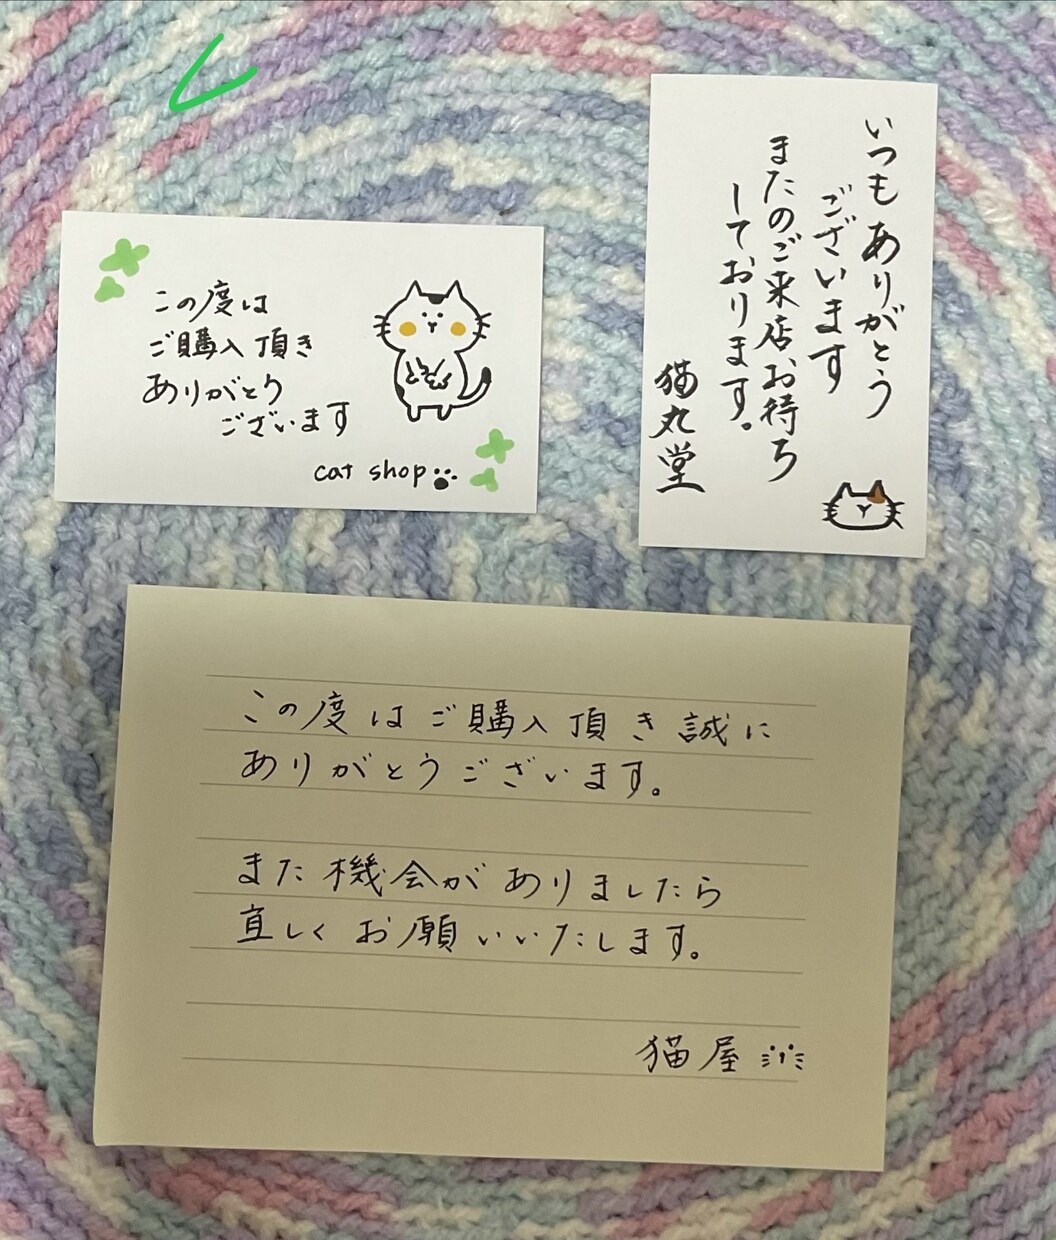 この度は
ご購入頂き
ありがとう
ございます
cat shop
いつもありがとう
ございます
またのご来店お待ち
しております。
猫丸堂
この度はご購入頂き誠に
ありがとうございます。
また機会がありましたら
宜しくお願いいたします。
猫屋